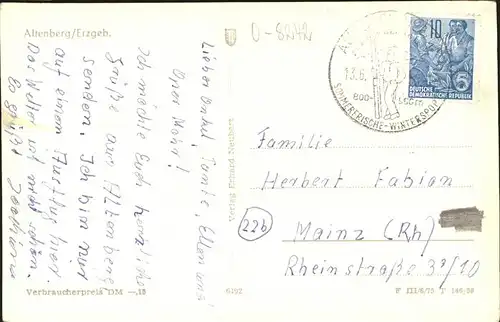 Altenberg/Erzgeb.
0-8242
Lieber Onkel, Tante, Ellen und
Oper Mohr!
Ich möchte Euch herzliche
Grüße aus Altenberg
senden. Ich bin mit
auf einem hier.
Das Wetter ist nicht schön.
Es grüßt
Verbraucherpreis DM —,15
Verlag Erhard Neubert
6192
10
DEUTSCHE
DEMOKRATISCHE REPUBLIK
13.6.
800-
SOMMERFRISCHE-WINTERSPORT
Familie
Herbert Fabian
(22b)
Mainz (Rh)
Rheinstraße 37/10